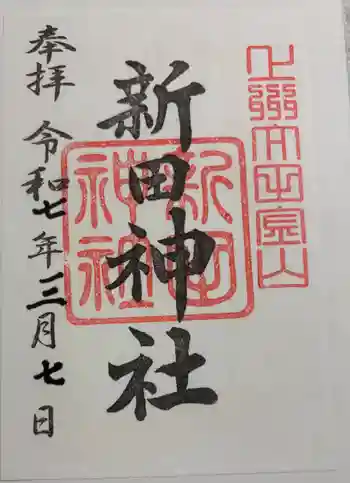 上野太田金山
新田神社
新田神社
奉拝 令和七年三月七日